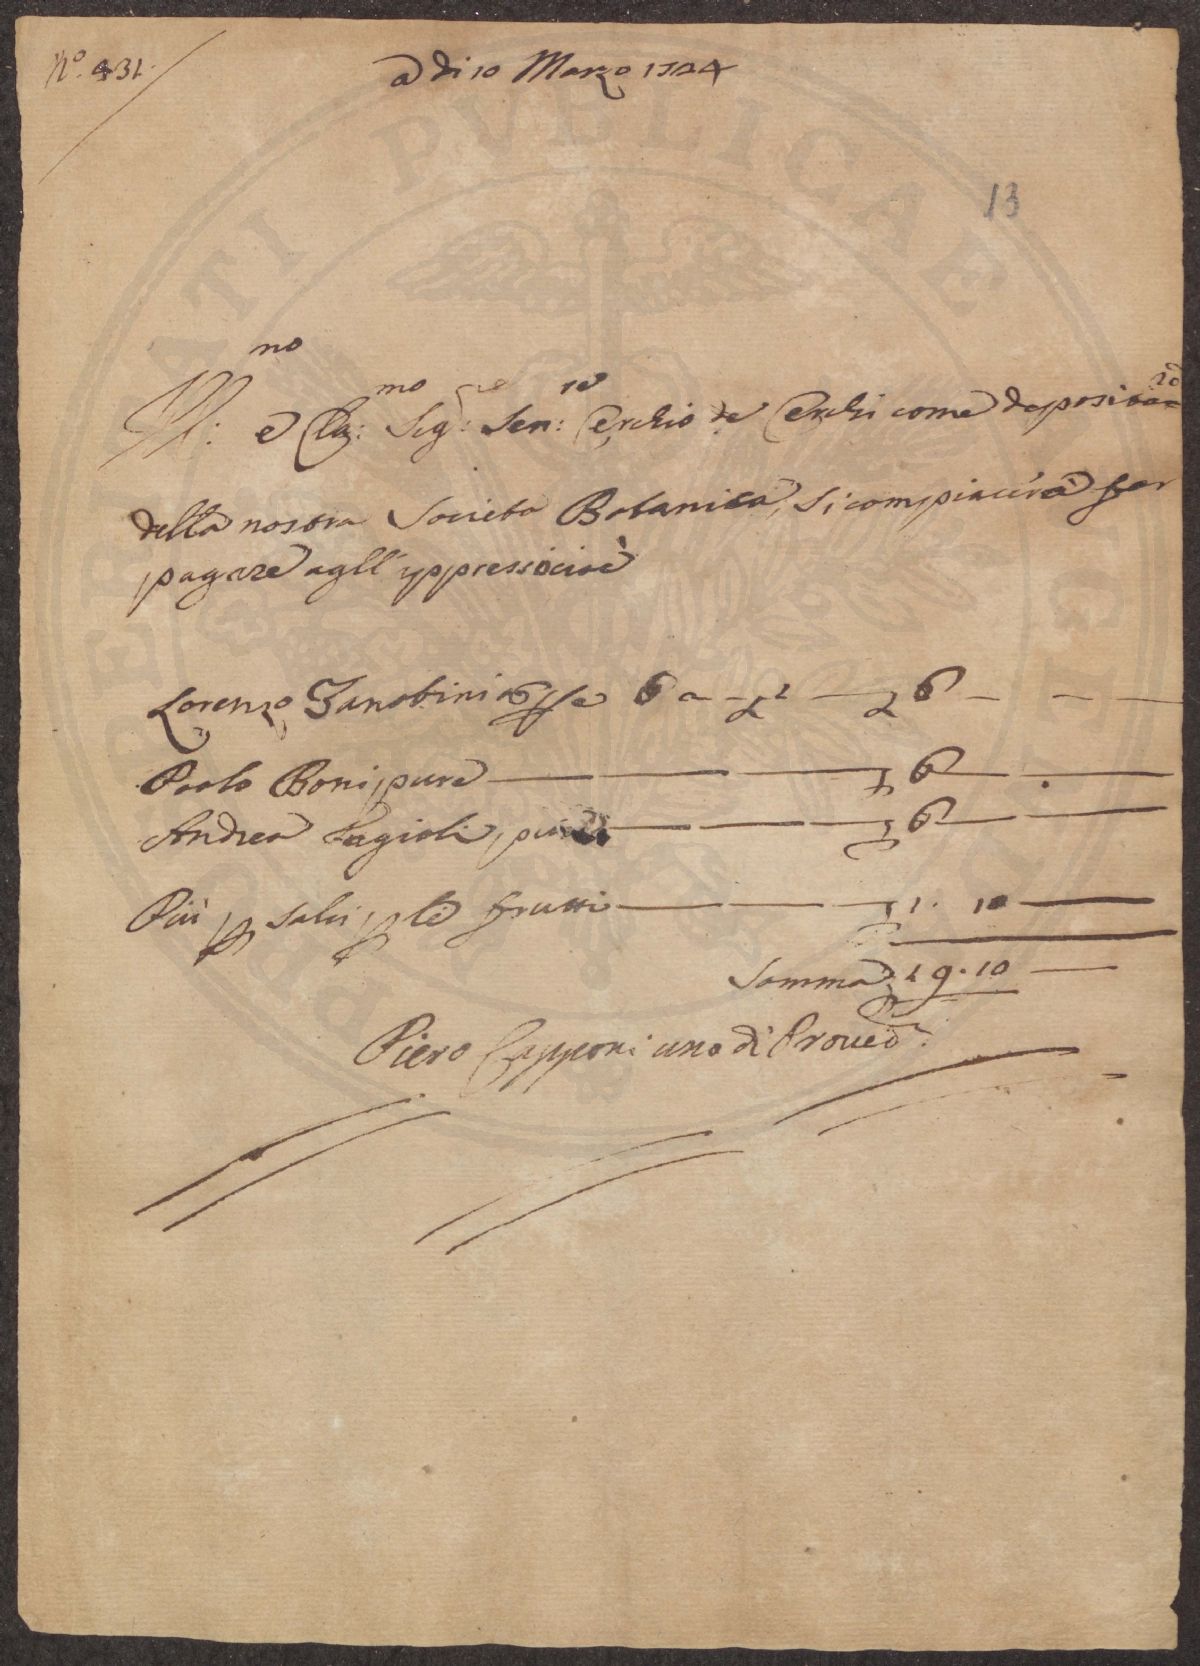 N.º 431.
a di 10 Marzo 1724
13
Ill:mo e Cla:mo Sig:re Sen:re Cerchio de Cerchi come depositario
della nostra Societa Botanica, si compiacerà far
pagare agll'ppressocioè
Lorenzo Zanobini opre 6 a £ 1 — £ 6 —
Paolo Boni, pure — £ 6 —
Andrea Fagioli, pure — £ 6 —
Più p salci p le frutti — £ 1. 10 —
Somma £ 19.10 —
Piero Capponi uno di Proved.r
PVBLICAE